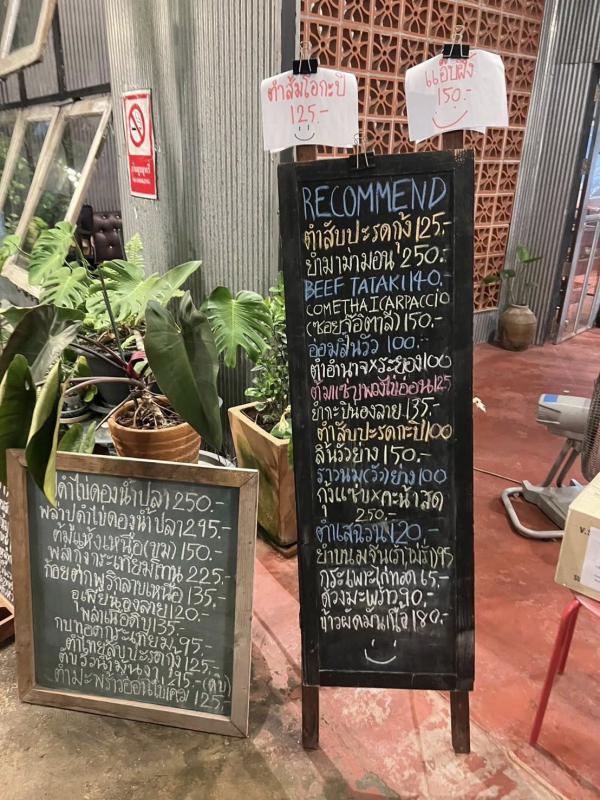 ตำส้มโอกะปิ
125.-
แอ๊บฝั้ง
150.-
RECOMMEND
ตำสับปะรดกุ้ง 125.-
ยำมามามอน 250.-
BEEF TATAKI 140.-
COMETHAI CARPACCIO
(ซอยจุ๊อิตาลี) 150.-
อ่อมลิ้นวัว 100.-
ตำอำนาจ x ระยอง 100
ต้มแซ่บพวงไข่อ่อน 125
ยำกะปินองลาย 135.-
ตำสับปะรดกะปิ 100
ลิ้นวัวย่าง 150.-
ราวนม(วัว)ย่าง 100
กุ้งแช่บ x คะน้าสด
250.-
ตำเส้นวุ้น 120.-
95
กระเพาะไก่ทอด 65.-
ด้วงมะพร้าว 90.-
ข้าวผัดมันเนื้อ 180.-
ตำไข่ดองน้ำปลา 250.-
พล่าปูดำไข่ดองน้ำปลา 295.-
ต้มแห้งเหนือ(ขม) 150.-
พล่ากุ้งกระเทียมโทน 225.-
ก้อยตำพูรูลาบเหนือ 135.-
อุเพี้ยนองลาย 120.-
พล่าเนื้อดิบ 135.-
กบทอดกระเทียม 95.-
ตำไทยสับปะรดกุ้ง 125.-
195.-(ดิบ)
ตำมะพร้าวอ่อนไข่เค็ม 125.-